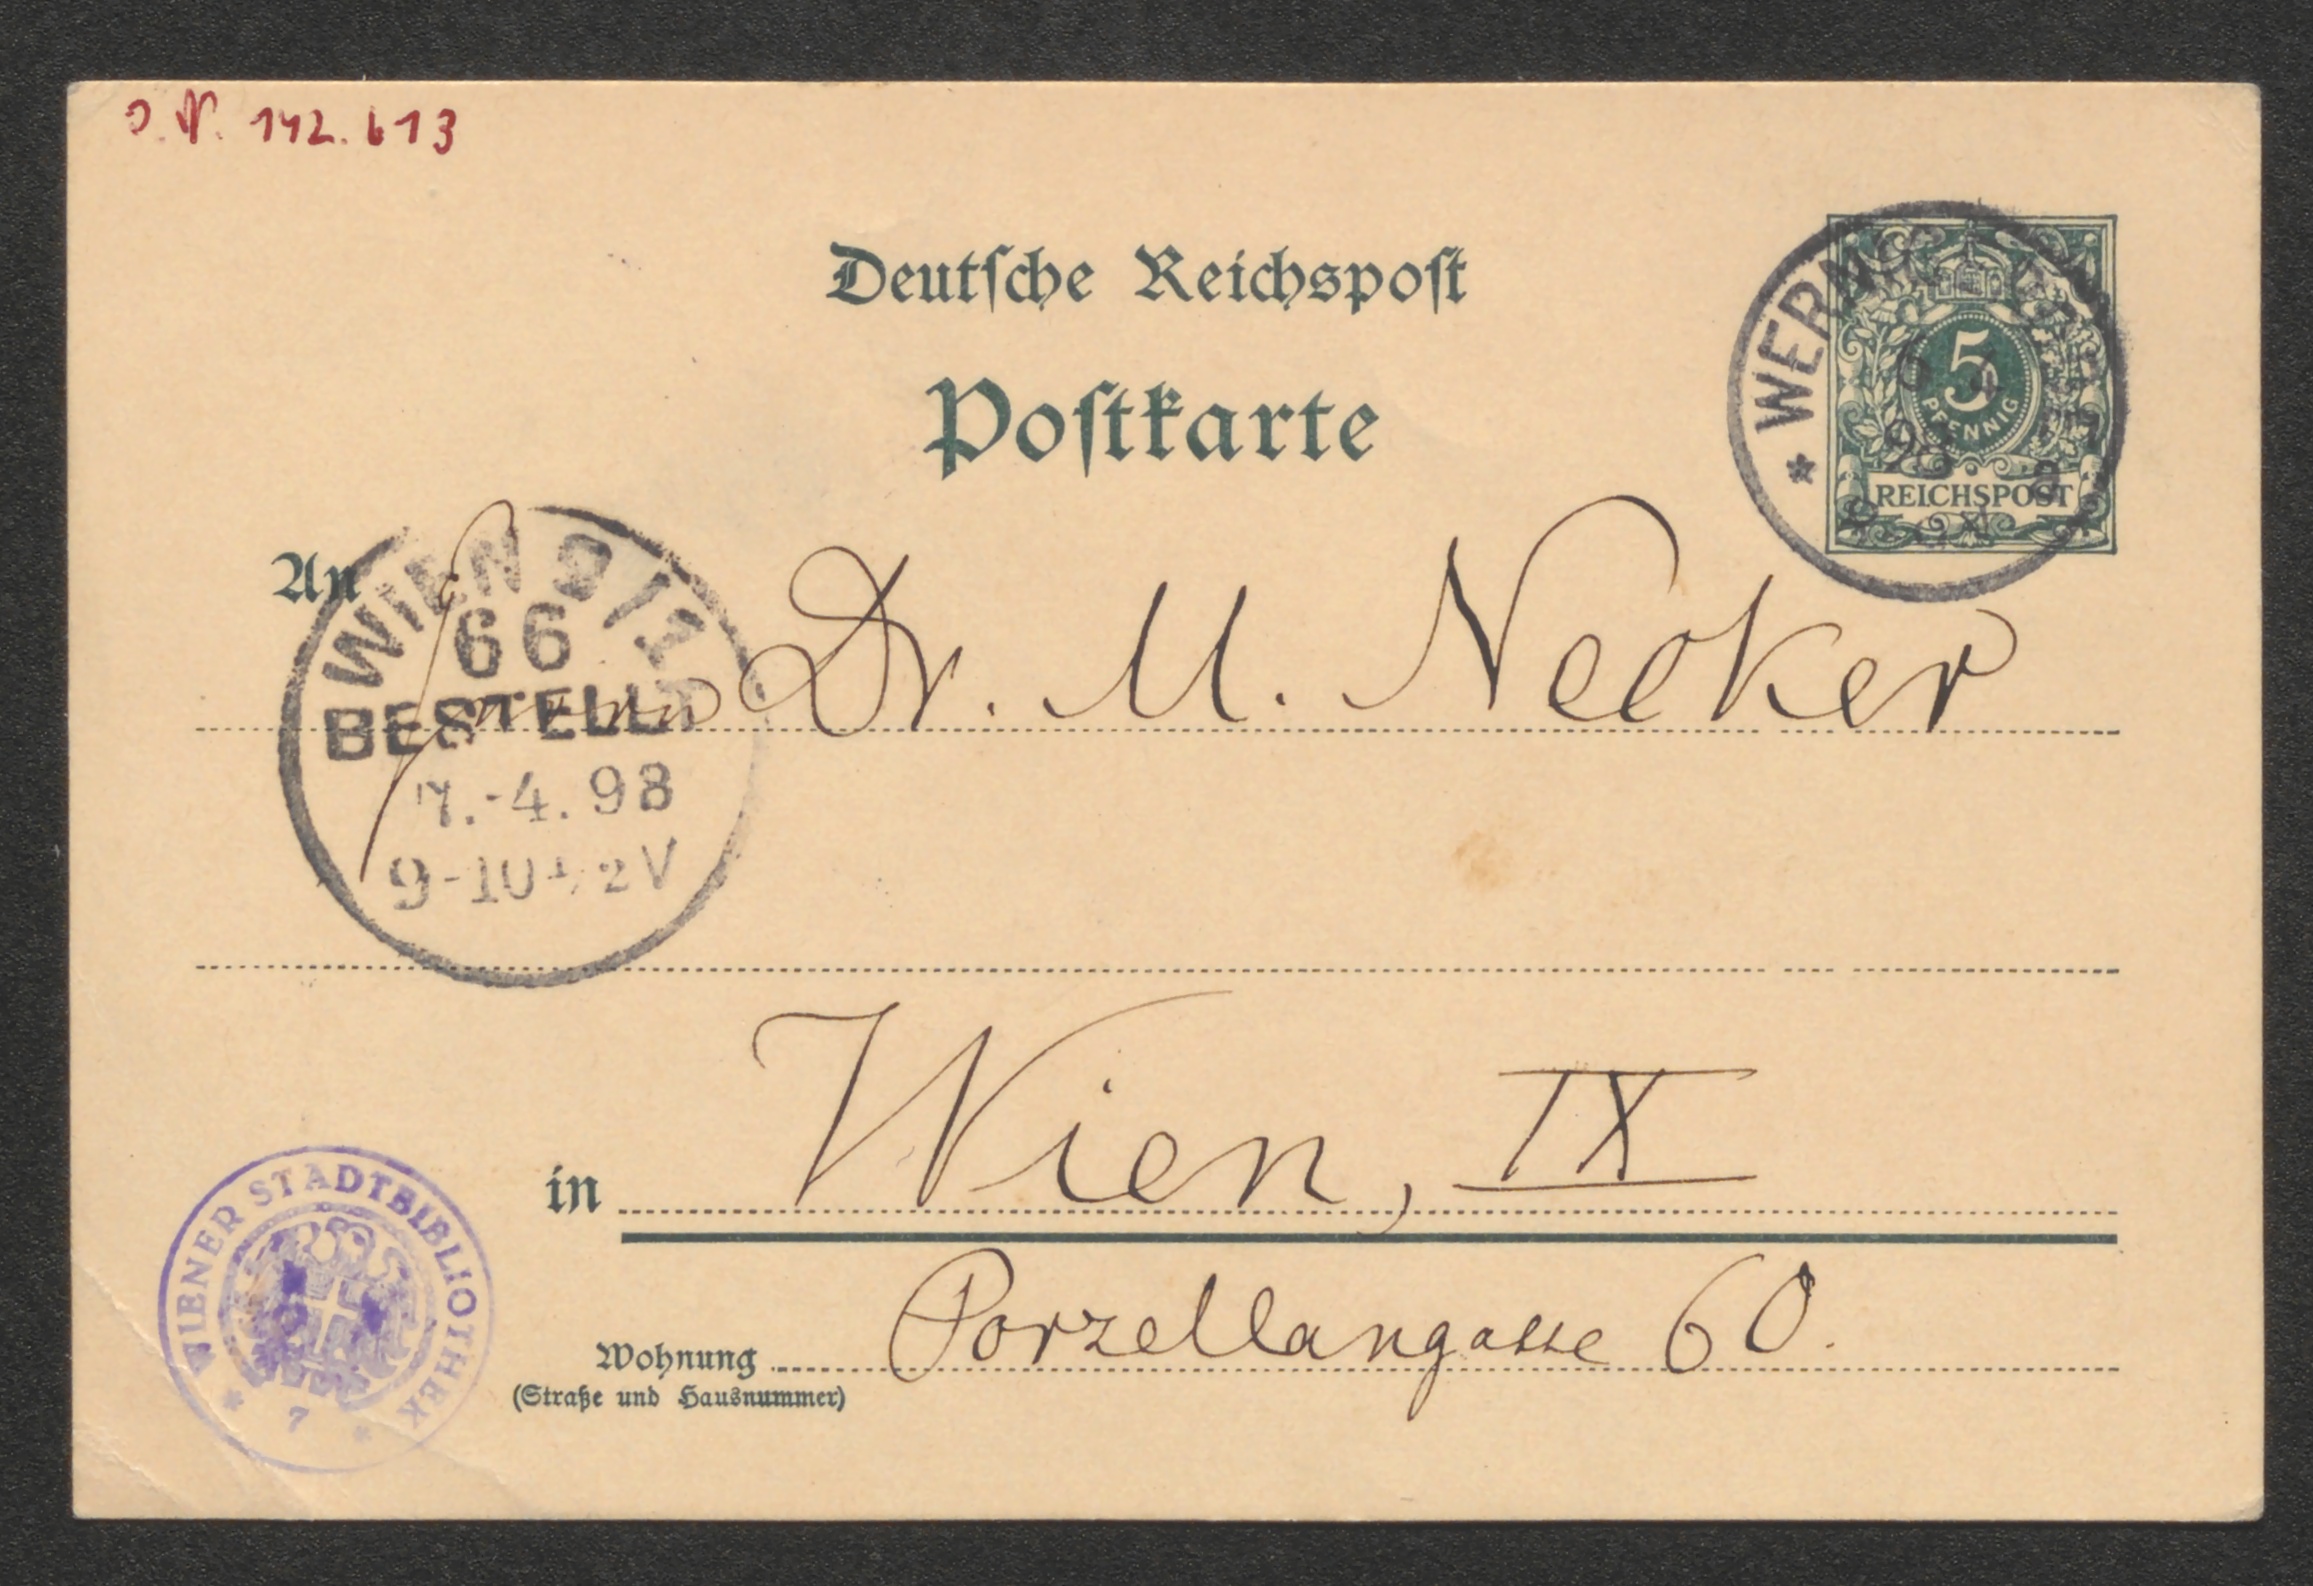 J.N. 142.613
Deutsche Reichspost
Postkarte
5
PFENNIG
REICHSPOST
* WERNIG
98
An
WIEN 9/1
66
BESTELLT
7.-4.98
9-10 1/2 V
Dr. M. Necker
in Wien, IX
Wohnung Porzellangasse 60.
(Straße und Hausnummer)
WIENER STADTBIBLIOTHEK
* 7 *